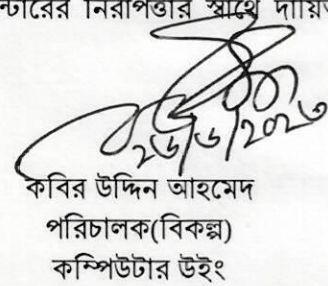 ন্টারের নিরাপত্তার স্বার্থে দায়িত
২৬/৬/২০২৩
কবির উদ্দিন আহমেদ
পরিচালক(বিকল্প)
কম্পিউটার উইং